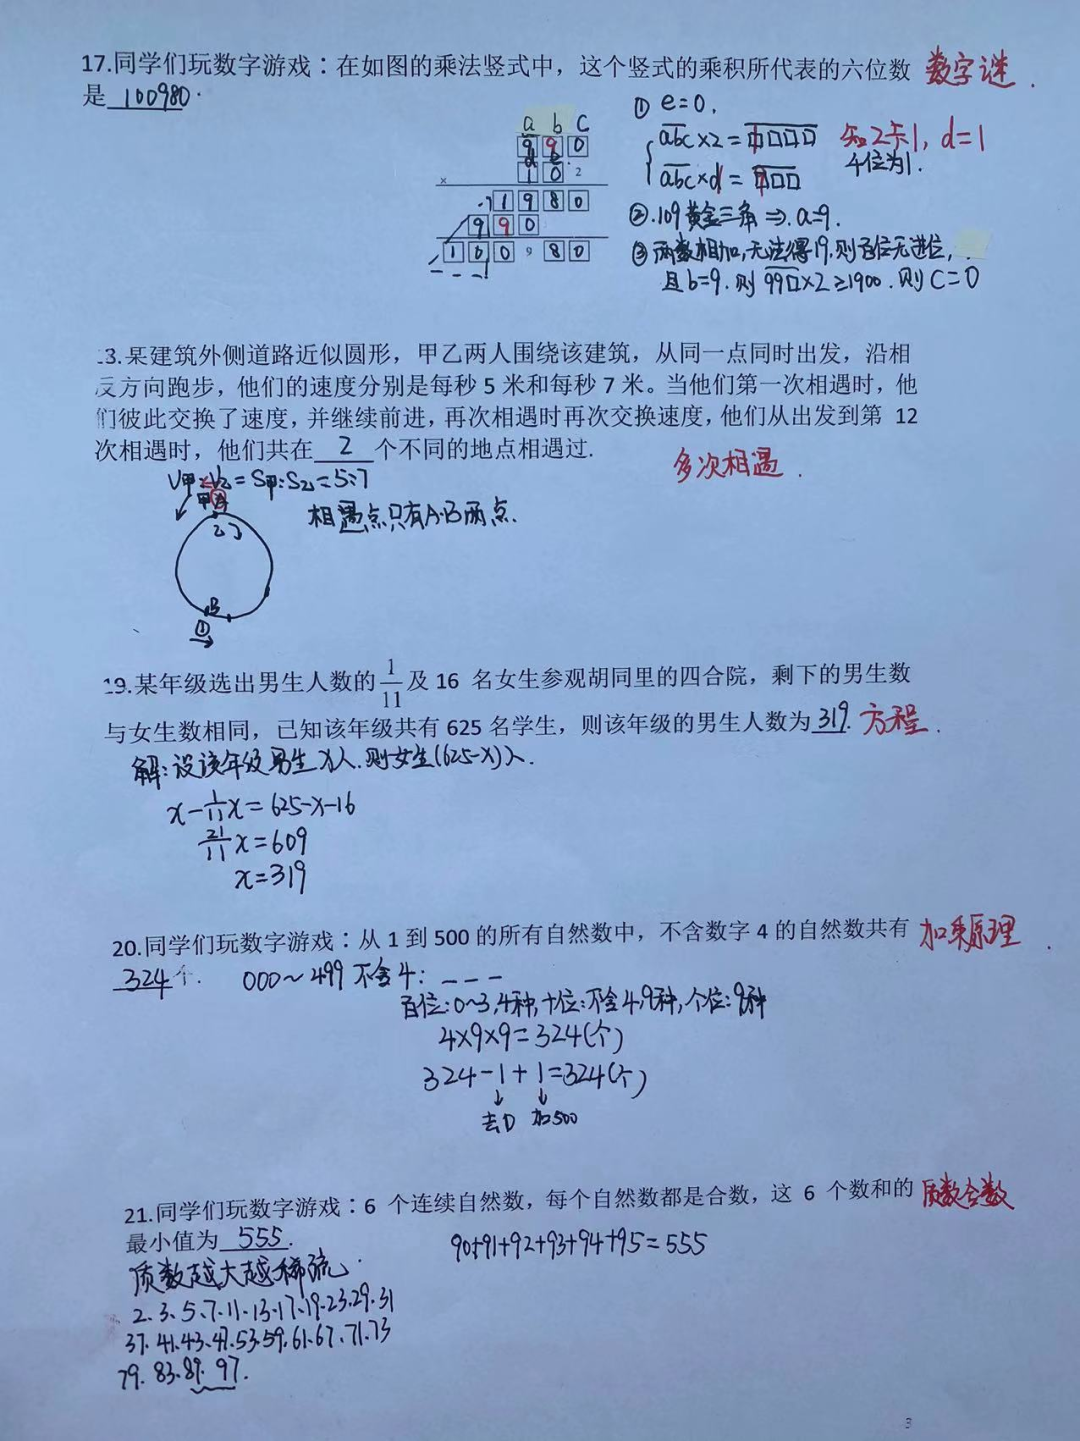 17.同学们玩数字游戏：在如图的乘法竖式中，这个竖式的乘积所代表的六位数 数字谜.
是 100980.
① e=0.
a b c
9 9 0
d e
1 0 2
×
1 9 8 0
9 9 0
1 0 0 9 8 0
abc×2=1□□□ 知2卡1, d=1
4位为1.
abc×d=9□□
②.109黄金三角⇒.a=9.
③两数相加,无法得19,则百位无进位,
且b=9.则99□×2≥1900.则C=0
3.某建筑外侧道路近似圆形，甲乙两人围绕该建筑，从同一点同时出发，沿相
反方向跑步，他们的速度分别是每秒 5 米和每秒 7 米。当他们第一次相遇时，他
们彼此交换了速度，并继续前进，再次相遇时再次交换速度，他们从出发到第 12
次相遇时，他们共在 2 个不同的地点相遇过.
多次相遇.
V甲:V乙=S甲:S乙=5:7
甲 A
乙
相遇点只有A.B两点.
B
①
19.某年级选出男生人数的 1/11 及 16 名女生参观胡同里的四合院，剩下的男生数
与女生数相同，已知该年级共有 625 名学生，则该年级的男生人数为 319. 方程.
解:设该年级男生x人.则女生(625-x)人.
x-1/11x=625-x-16
21/11x=609
x=319
20.同学们玩数字游戏：从 1 到 500 的所有自然数中，不含数字 4 的自然数共有 加乘原理.
324个. 000~499 不含4: _ _ _
百位:0~3,4种,十位:不含4,9种,个位:9种
4×9×9=324(个)
324-1+1=324(个)
↓ ↓
去0 加500
21.同学们玩数字游戏：6 个连续自然数，每个自然数都是合数，这 6 个数和的 质数合数
最小值为 555. 90+91+92+93+94+95=555
质数越大越稀疏.
2.3.5.7.11.13.17.19.23.29.31
37.41.43.47.53.59.61.67.71.73
79.83.89.97.
3